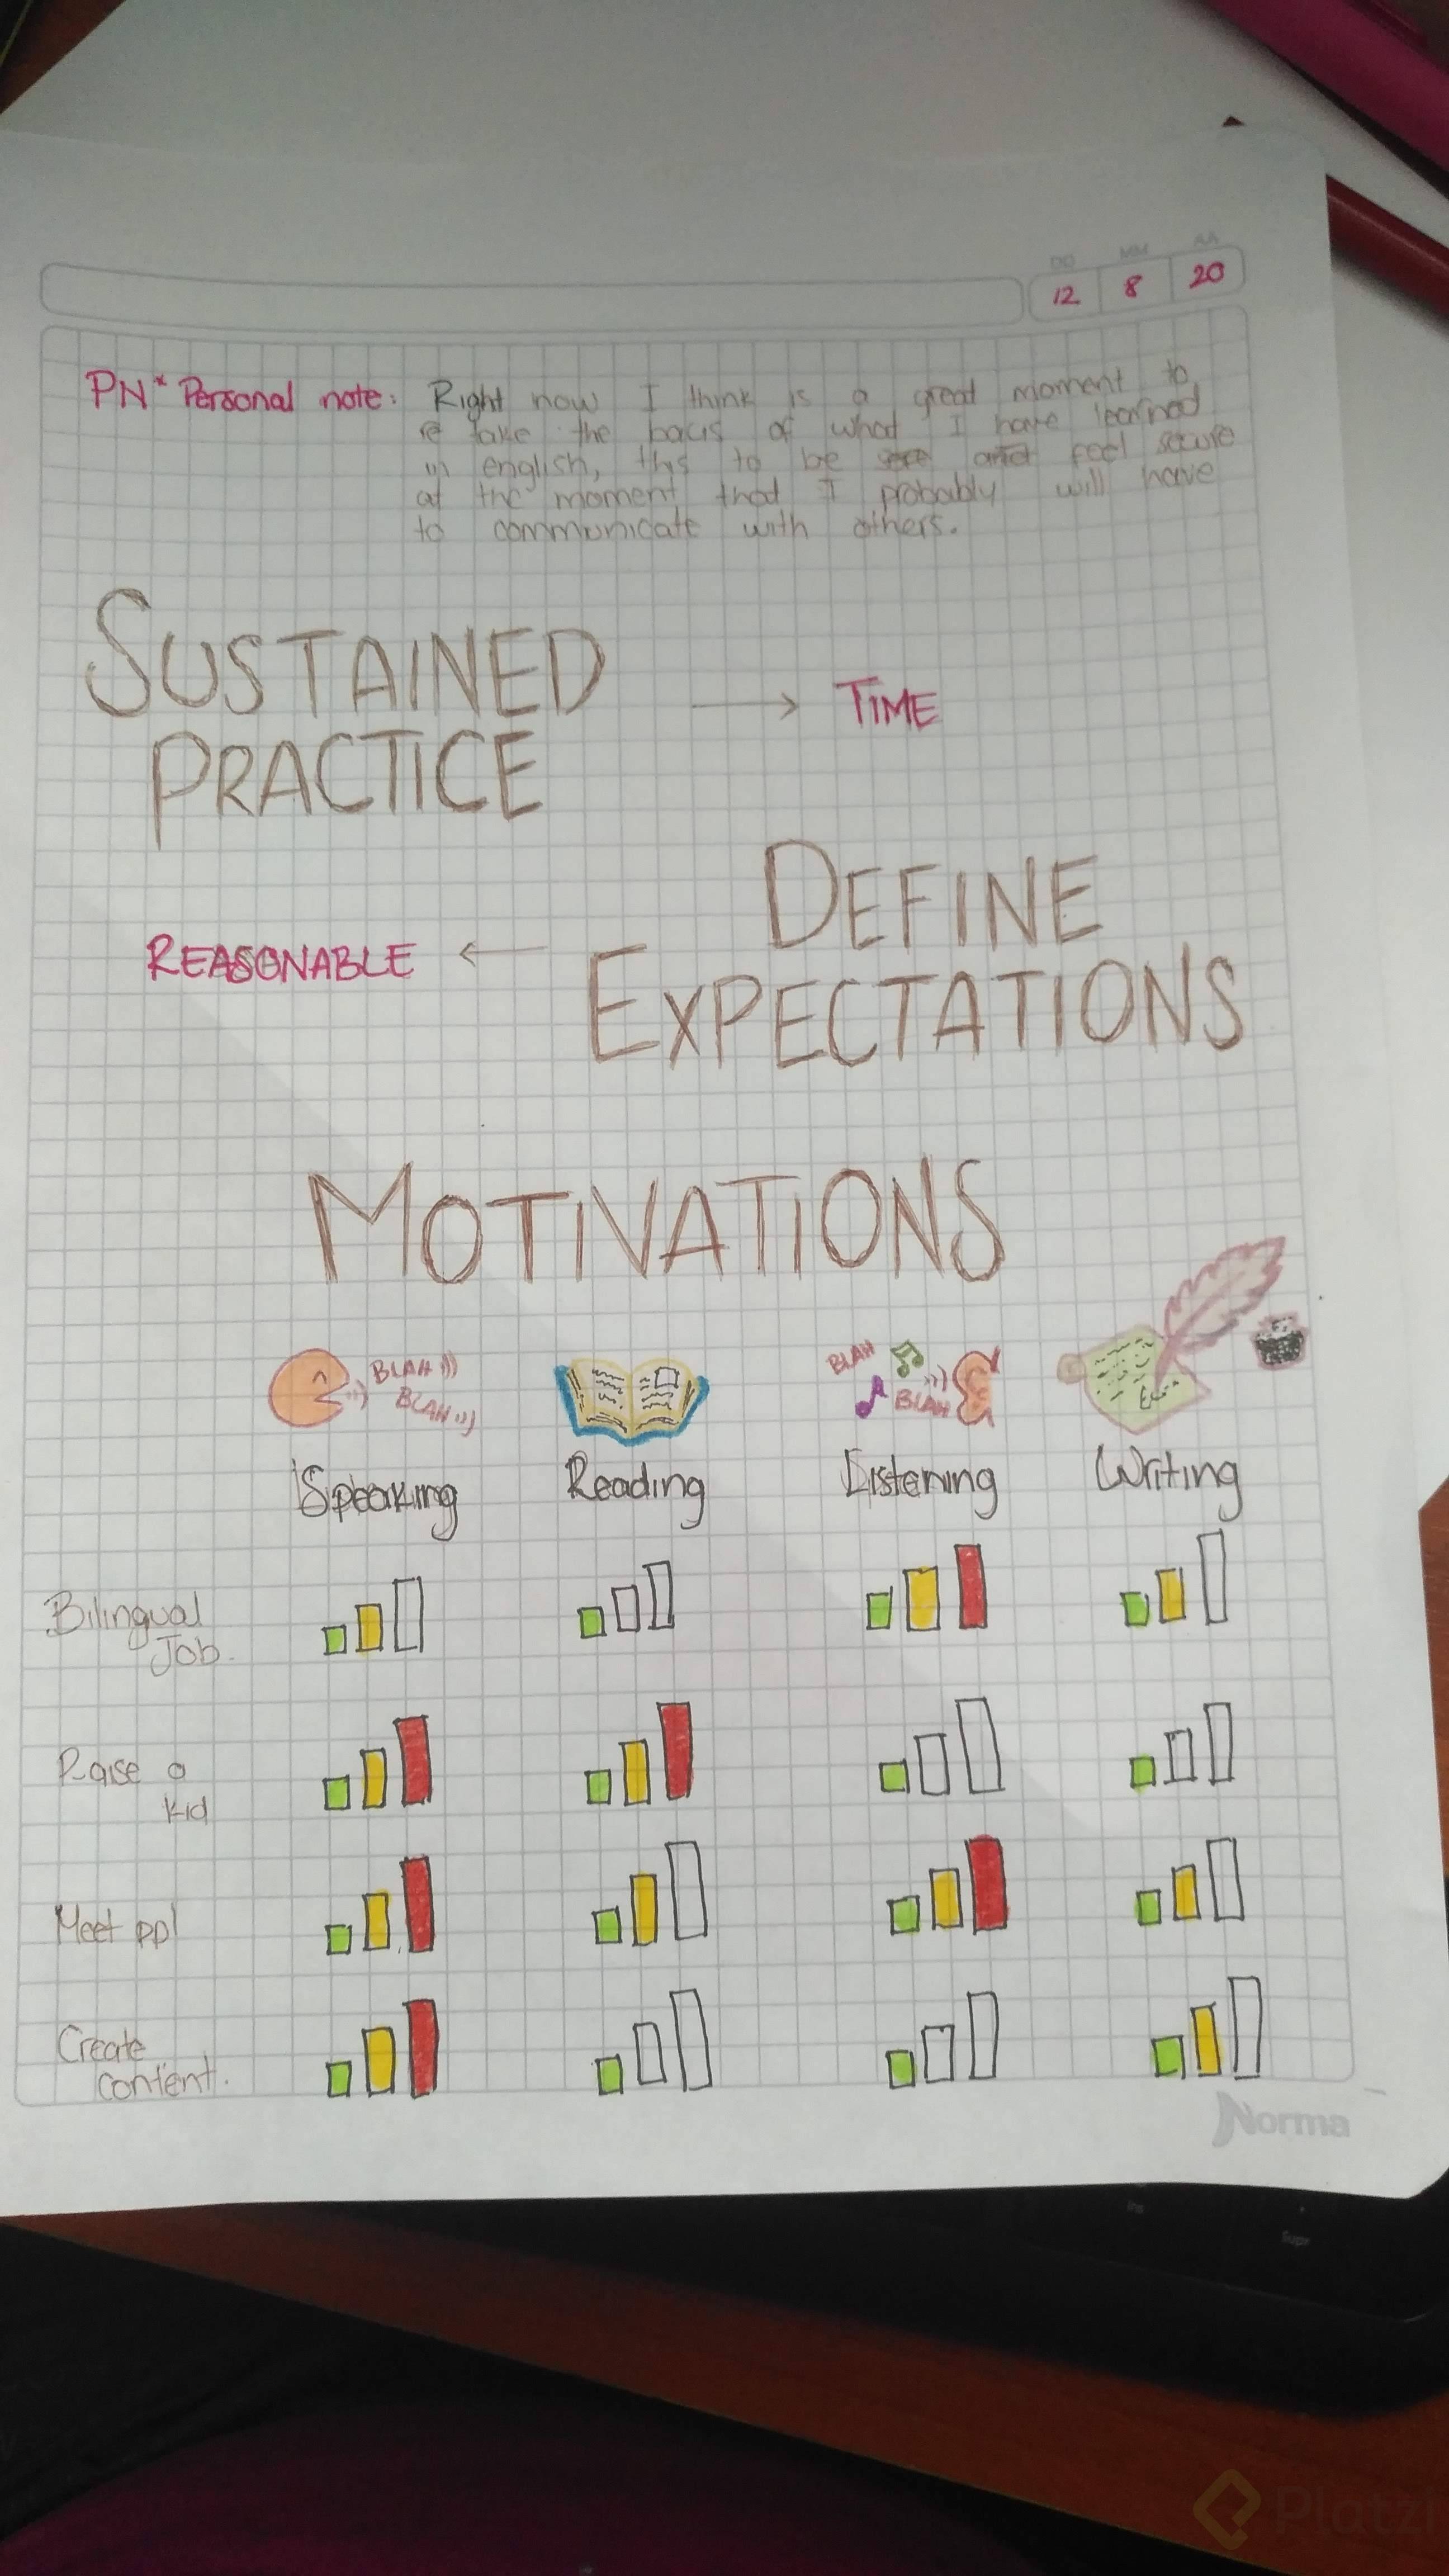 DD MM AA
12 8 20
PN* Personal note: Right now I think is a great moment to
re take the basis of what I have learned
in english, this to be and feel secure
at the moment that I probably will have
to communicate with others.
SUSTAINED
PRACTICE
→ TIME
DEFINE
EXPECTATIONS
REASONABLE ←
MOTIVATIONS
BLAH
BLAH
BLAH
BLAH
Speaking Reading Listening Writing
Bilingual
Job.
Raise a
kid
Meet ppl
Create
content.
Norma
Ins
Supr
Platzi